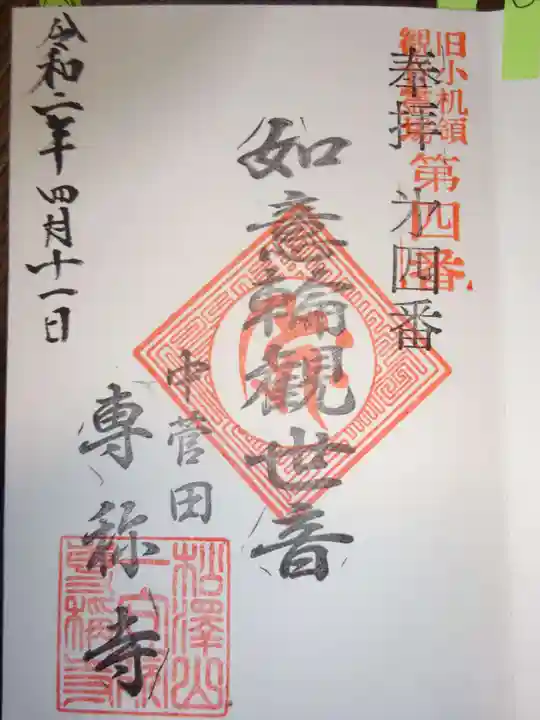 旧小机領
観音霊場
第四番
奉拝 才四番
如意輪観世音
中菅田
専称寺
令和二年四月十一日
松澤山
専称寺